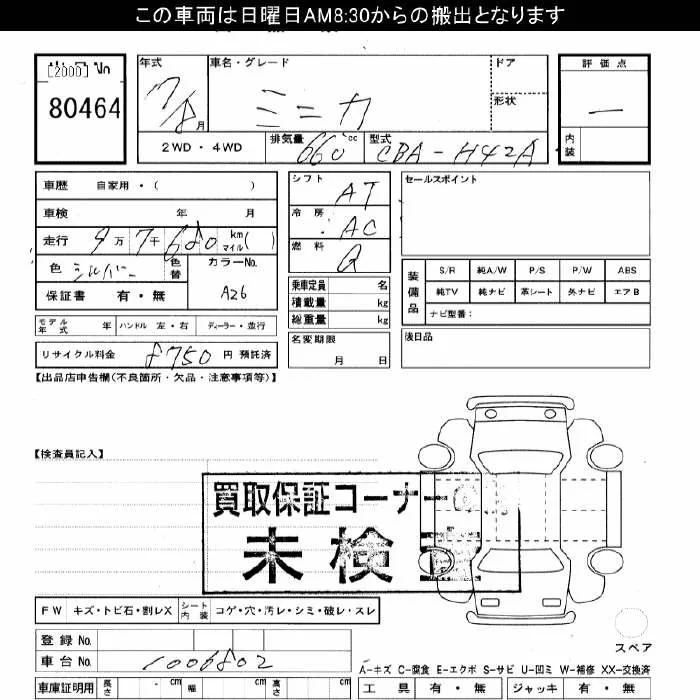 この車両は日曜日AM8:30からの搬出となります
[2000] No
80464
年式
車名・グレード
ドア
評価点
17/8月
ミニカ
形状
—
内装
2WD・4WD
排気量 660 cc
型式 CBA-H42A
車歴 自家用・( )
シフト AT
セールスポイント
車検 年 月
冷房 AC
走行 9万7千680 km マイル( )
燃料 G
色 シルバー 色替
カラーNo. A26
乗車定員 名
装備品
S/R 純A/W P/S P/W ABS
保証書 有・無
積載量 kg
純TV 純ナビ 革シート 外ナビ エアB
総重量 kg
ナビ型番:
モデル年式 年 ハンドル 左・右 ディーラー・並行
名変期限 月 日
後日品
リサイクル料金 8750 円 預託済
【出品店申告欄(不良箇所・欠品・注意事項等)】
【検査員記入】
買取保証コーナー
未検
FW キズ・トビ石・割レX シート内装 コゲ・穴・汚レ・シミ・破レ・スレ
登録No.
スペア
車台No. 1006802
A-キズ C-腐食 E-エクボ S-サビ U-凹ミ W-補修 XX-交換済
車庫証明用 長さ cm 幅 cm 高さ cm
工具 有・無 ジャッキ 有・無